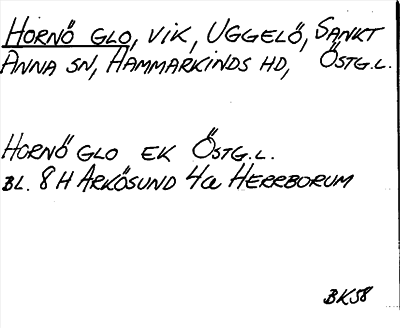 HORNÖ GLO, VIK, UGGELÖ, SANKT
ANNA SN, HAMMARKINDS HD, ÖSTG.L.
HORNÖ GLO EK ÖSTG.L.
BL. 8H ARKÖSUND 4a HERRBORUM
BK58